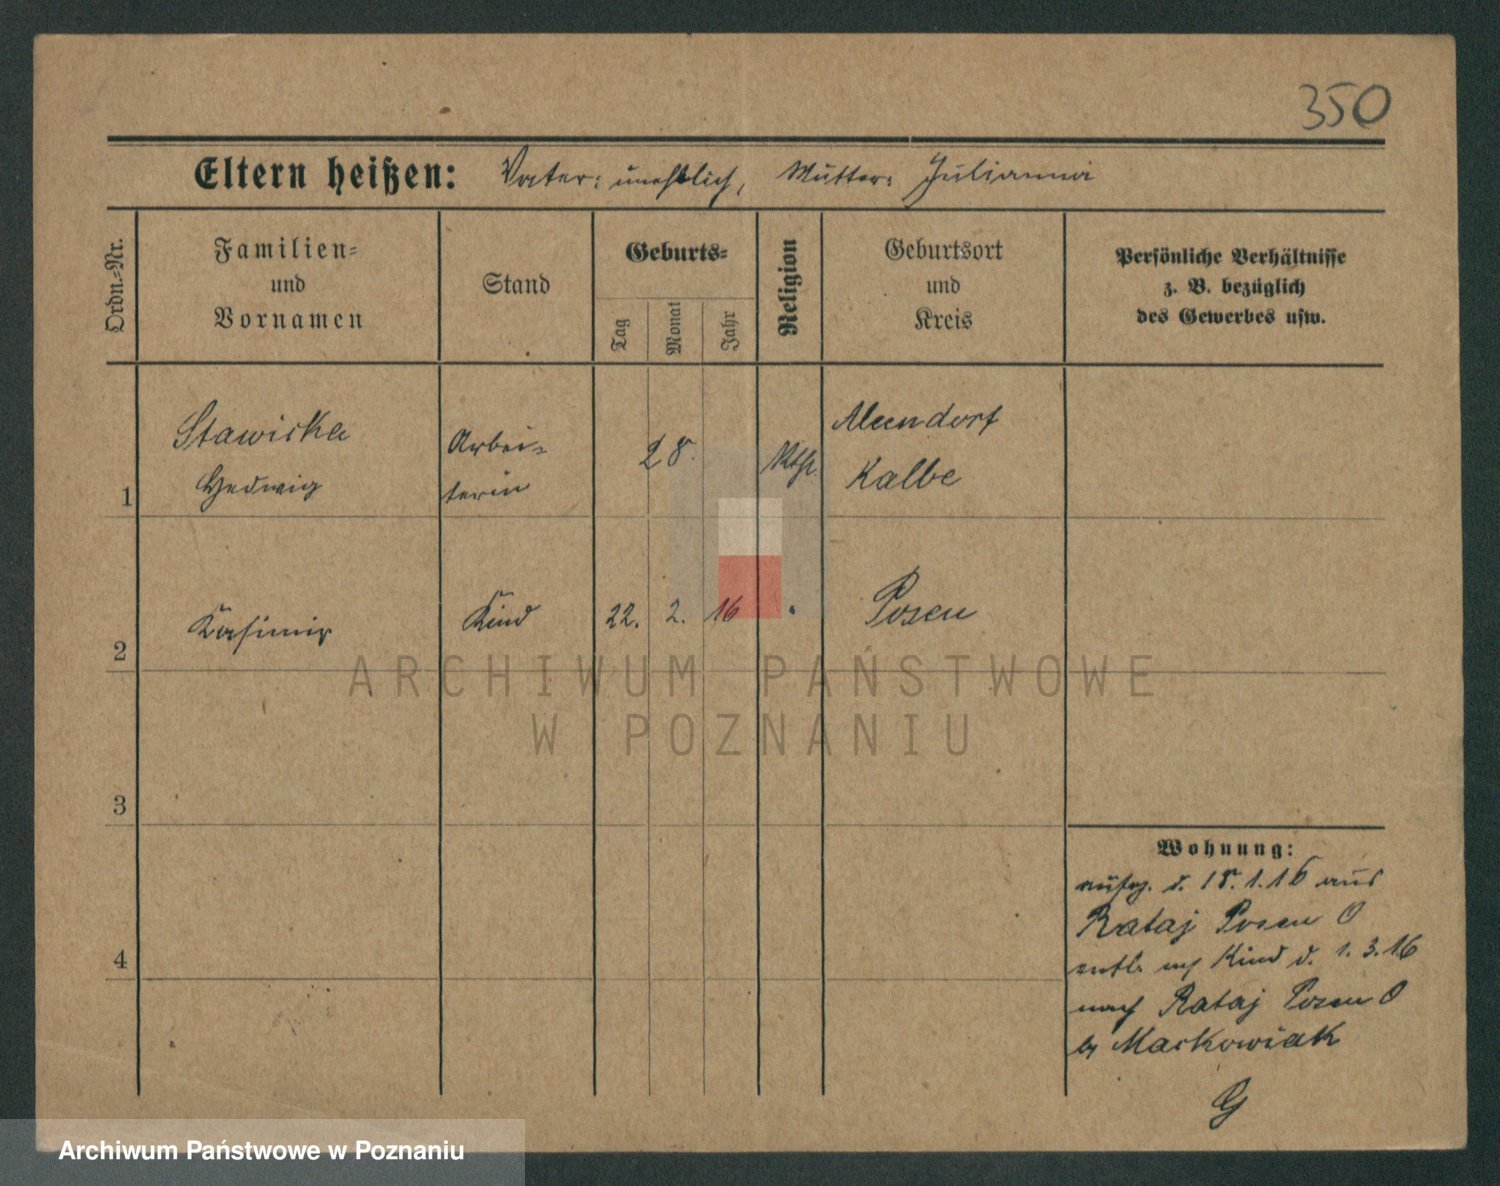 350
Eltern heißen: Vater: unehlich, Mutter: Julianna
Ordn.-Nr.
Familien-
und
Vornamen
Stand
Geburts-
Tag
Monat
Jahr
Religion
Geburtsort
und
Kreis
Persönliche Verhältnisse
z. B. bezüglich
des Gewerbes usw.
1
Stawicka
Hedwig
Arbei-
terin
28.
Kth.
Alendorf
Kalbe
2
Kasimir
Kind
22. 2. 16
Posen
3
4
Wohnung:
aufg. d. 18.1.16 aus
Rataj Posen O
entl. Kind d. 1.3.16
nach Rataj Posen O
b/ Mackowiak
G
ARCHIWUM PAŃSTWOWE
W POZNANIU
Archiwum Państwowe w Poznaniu